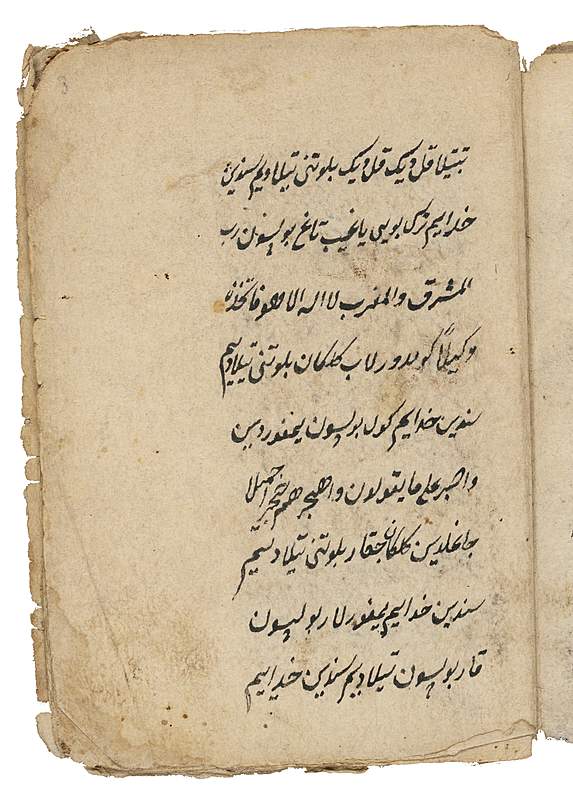 تبتیلا قل دیک قل دیک بلوتنی تیلادیم سندین
خدایم بولسون رب
المشرق والمغرب لا اله الا هو فاتخذه
وکیلاً کولدورلاب کلکان بلوتنی تیلادیم
سندین خدایم کول بولسون یمغوردین
واصبر علی ما یقولون واهجرهم هجرا جمیلا
کلکان بلوتنی تیلادیم
سندین خدایم یمغورلار بولسون
قار بولسون تیلادیم سندین خدایم